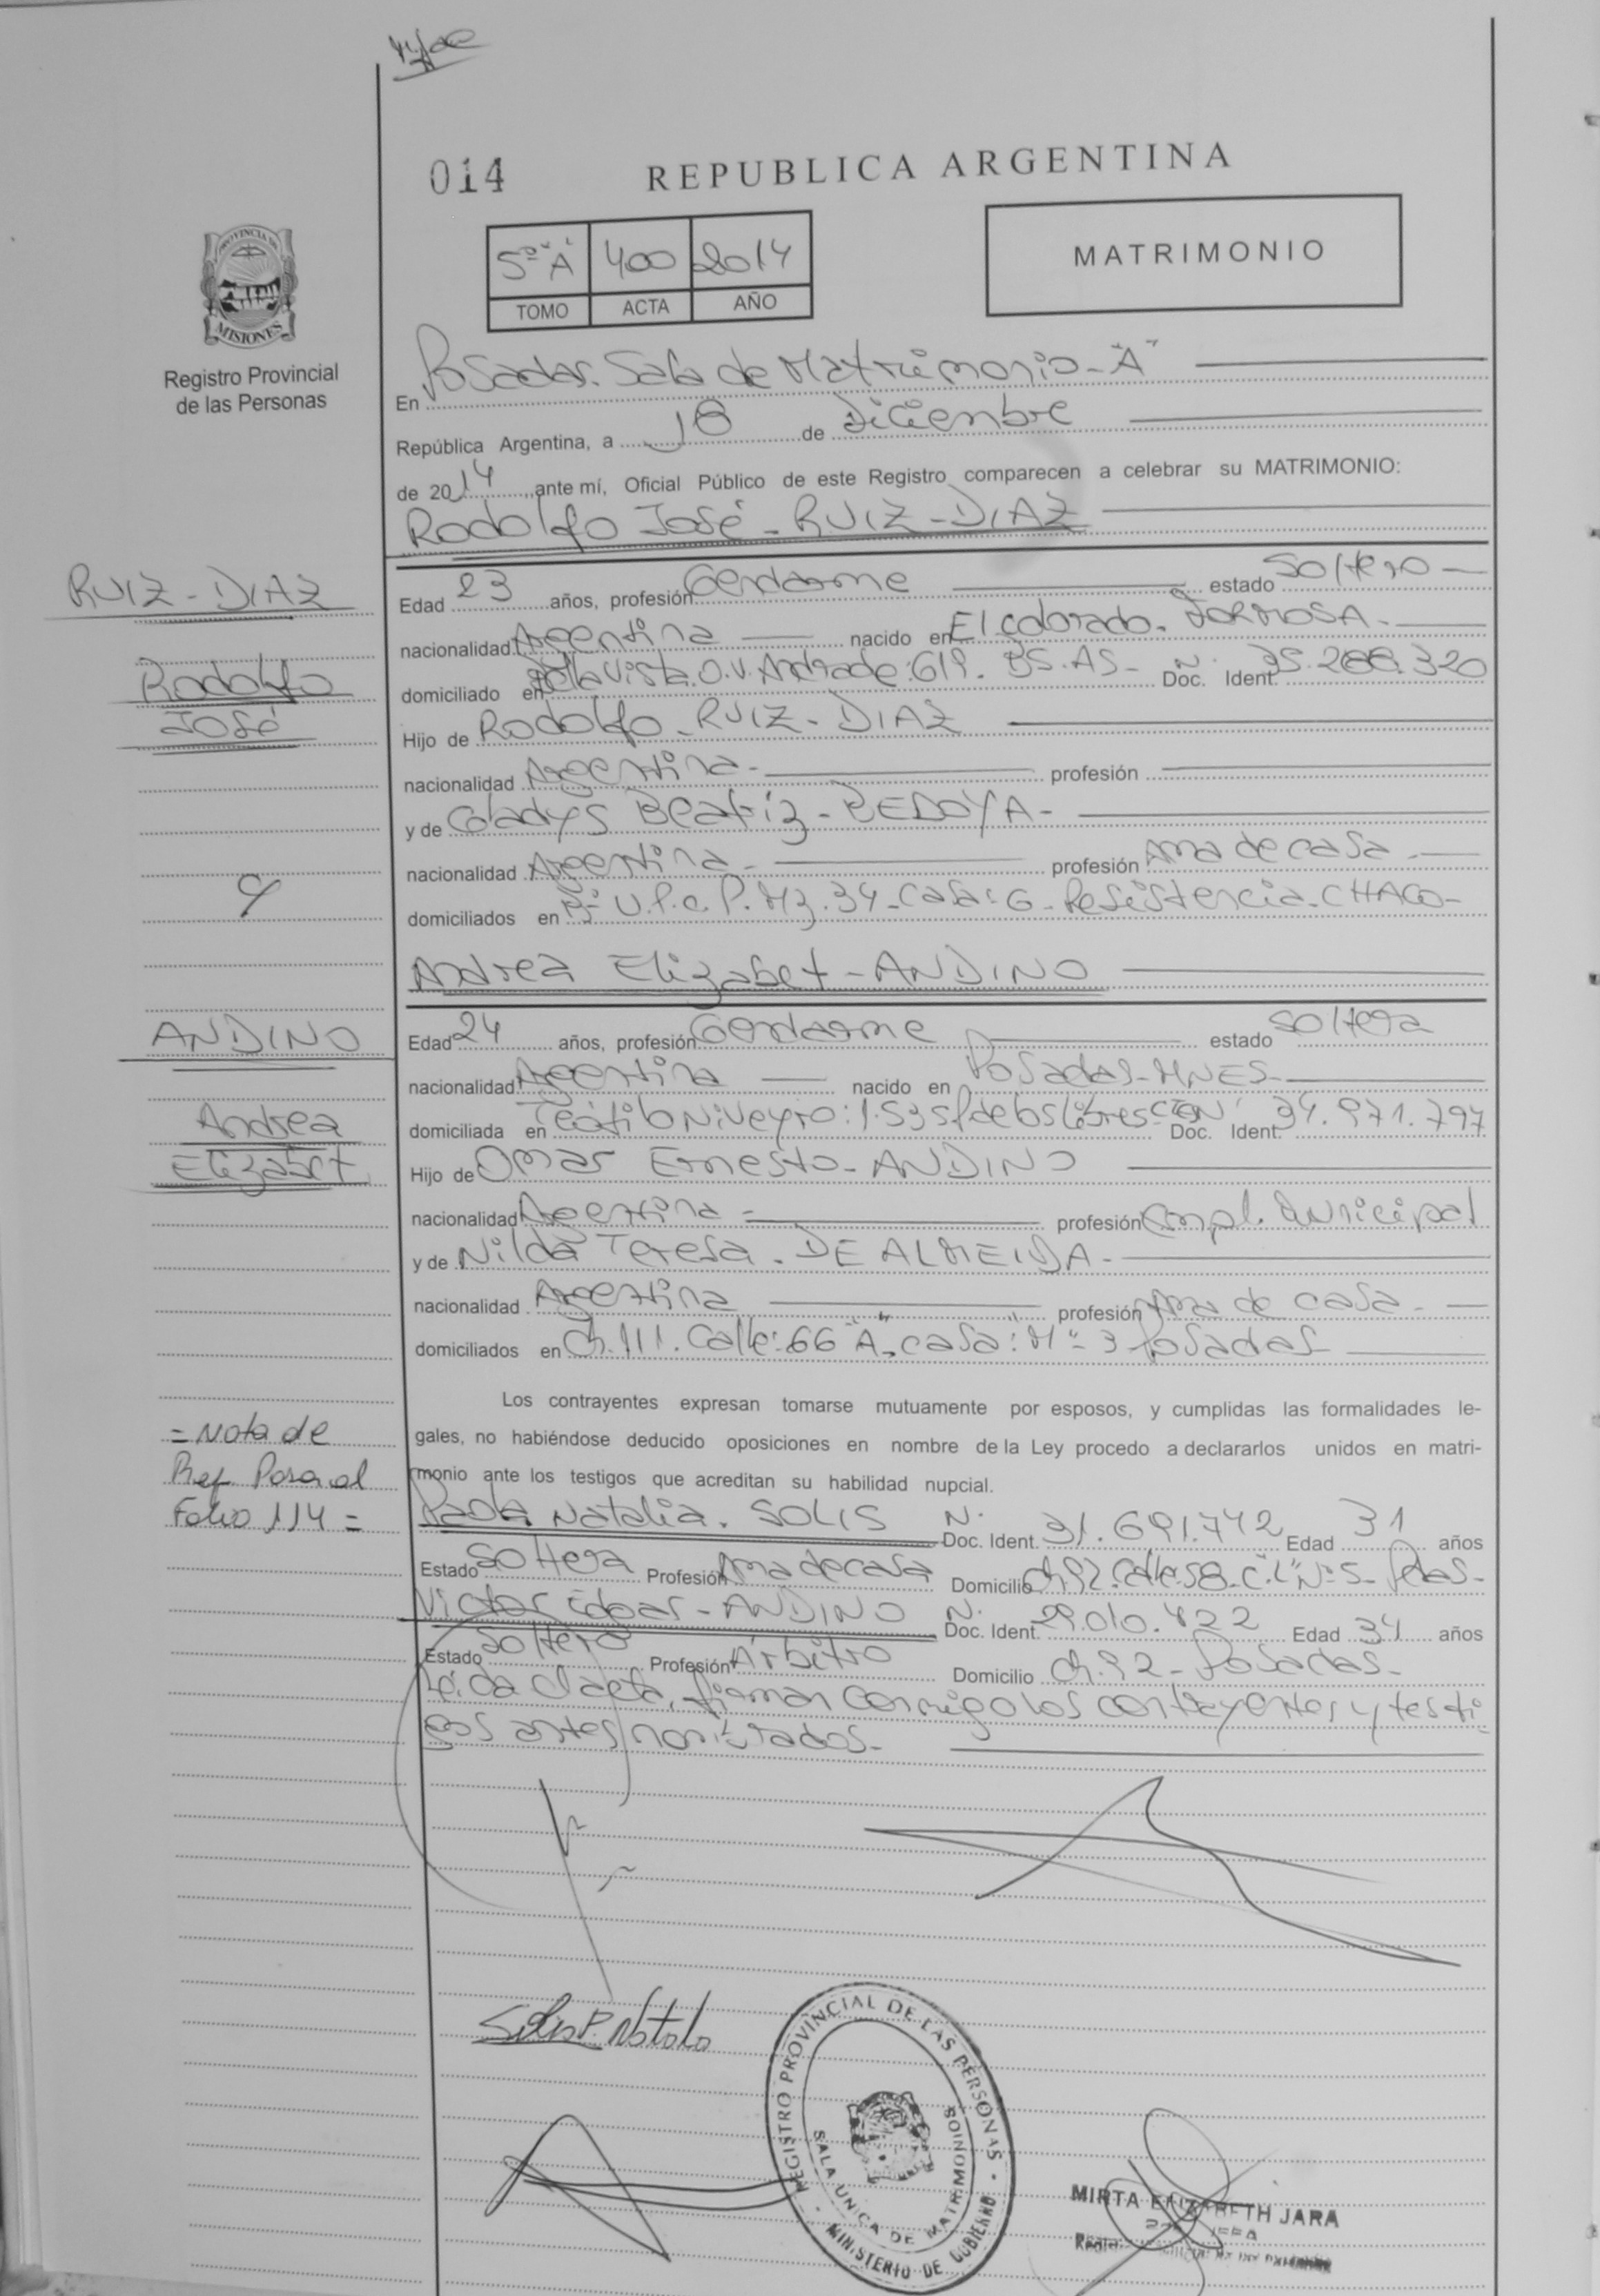 014
REPUBLICA ARGENTINA
5º "A" 400 2014
TOMO ACTA AÑO
MATRIMONIO
PROVINCIA DE
MISIONES
Registro Provincial
de las Personas
En Posadas. Sala de Matrimonio - "A"
República Argentina, a 18 de Diciembre
de 2014, ante mí, Oficial Público de este Registro comparecen a celebrar su MATRIMONIO:
Rodolfo José - RUIZ - DIAZ
RUIZ - DIAZ
Rodolfo
José
Edad 23 años, profesión Gendarme estado Soltero -
nacionalidad Argentina nacido en El Colorado. FORMOSA -
domiciliado en Bella Vista. O.V. Andrade: 619. BS. AS - Doc. Ident. Nº 35.288.320
Hijo de Rodolfo - RUIZ - DIAZ
nacionalidad Argentina - profesión
y de Gladys Beatriz - BEDOYA -
nacionalidad Argentina - profesión Ama de casa -
y
domiciliados en Bº U.P.C.P. Mz. 34 - Casa: 6 - Resistencia - CHACO -
Andrea Elizabet - ANDINO
ANDINO
Andrea
Elizabet
Edad 24 años, profesión Gendarme estado Soltera
nacionalidad Argentina nacido en Posadas - MNES -
domiciliada en Niveyro: 1.53 P. de los Libres - Doc. Ident. Nº 34.971.797
Hijo de Omar Ernesto - ANDINO
nacionalidad Argentina - profesión Empl. Municipal
y de Nilda Teresa - DE ALMEIDA -
nacionalidad Argentina profesión Ama de casa -
domiciliados en Ch. 111. Calle: 66 "A", casa: "M" - 3 Posadas -
Los contrayentes expresan tomarse mutuamente por esposos, y cumplidas las formalidades le-
gales, no habiéndose deducido oposiciones en nombre de la Ley procedo a declararlos unidos en matri-
monio ante los testigos que acreditan su habilidad nupcial.
= Nota de
Ref Pasa al
Folio 114 =
Paola Natalia. SOLIS Nº Doc. Ident. 31.691.742 Edad 31 años
Estado Soltera Profesión Ama de casa Domicilio Ch. 92. Calle. 58 - C. "L" Nº 5 - Pdas -
Victor Edgar - ANDINO Nº Doc. Ident. 29.010.422 Edad 34 años
Estado Soltero Profesión Arbitro Domicilio Ch. 92 - Posadas -
Leída el acta, firman conmigo los contrayentes y testi-
gos antes nominados -
Solis P. Natalia
REGISTRO PROVINCIAL DE LAS PERSONAS
MINISTERIO DE GOBIERNO
SALA UNICA DE MATRIMONIOS
MIRTA ELIZABETH JARA